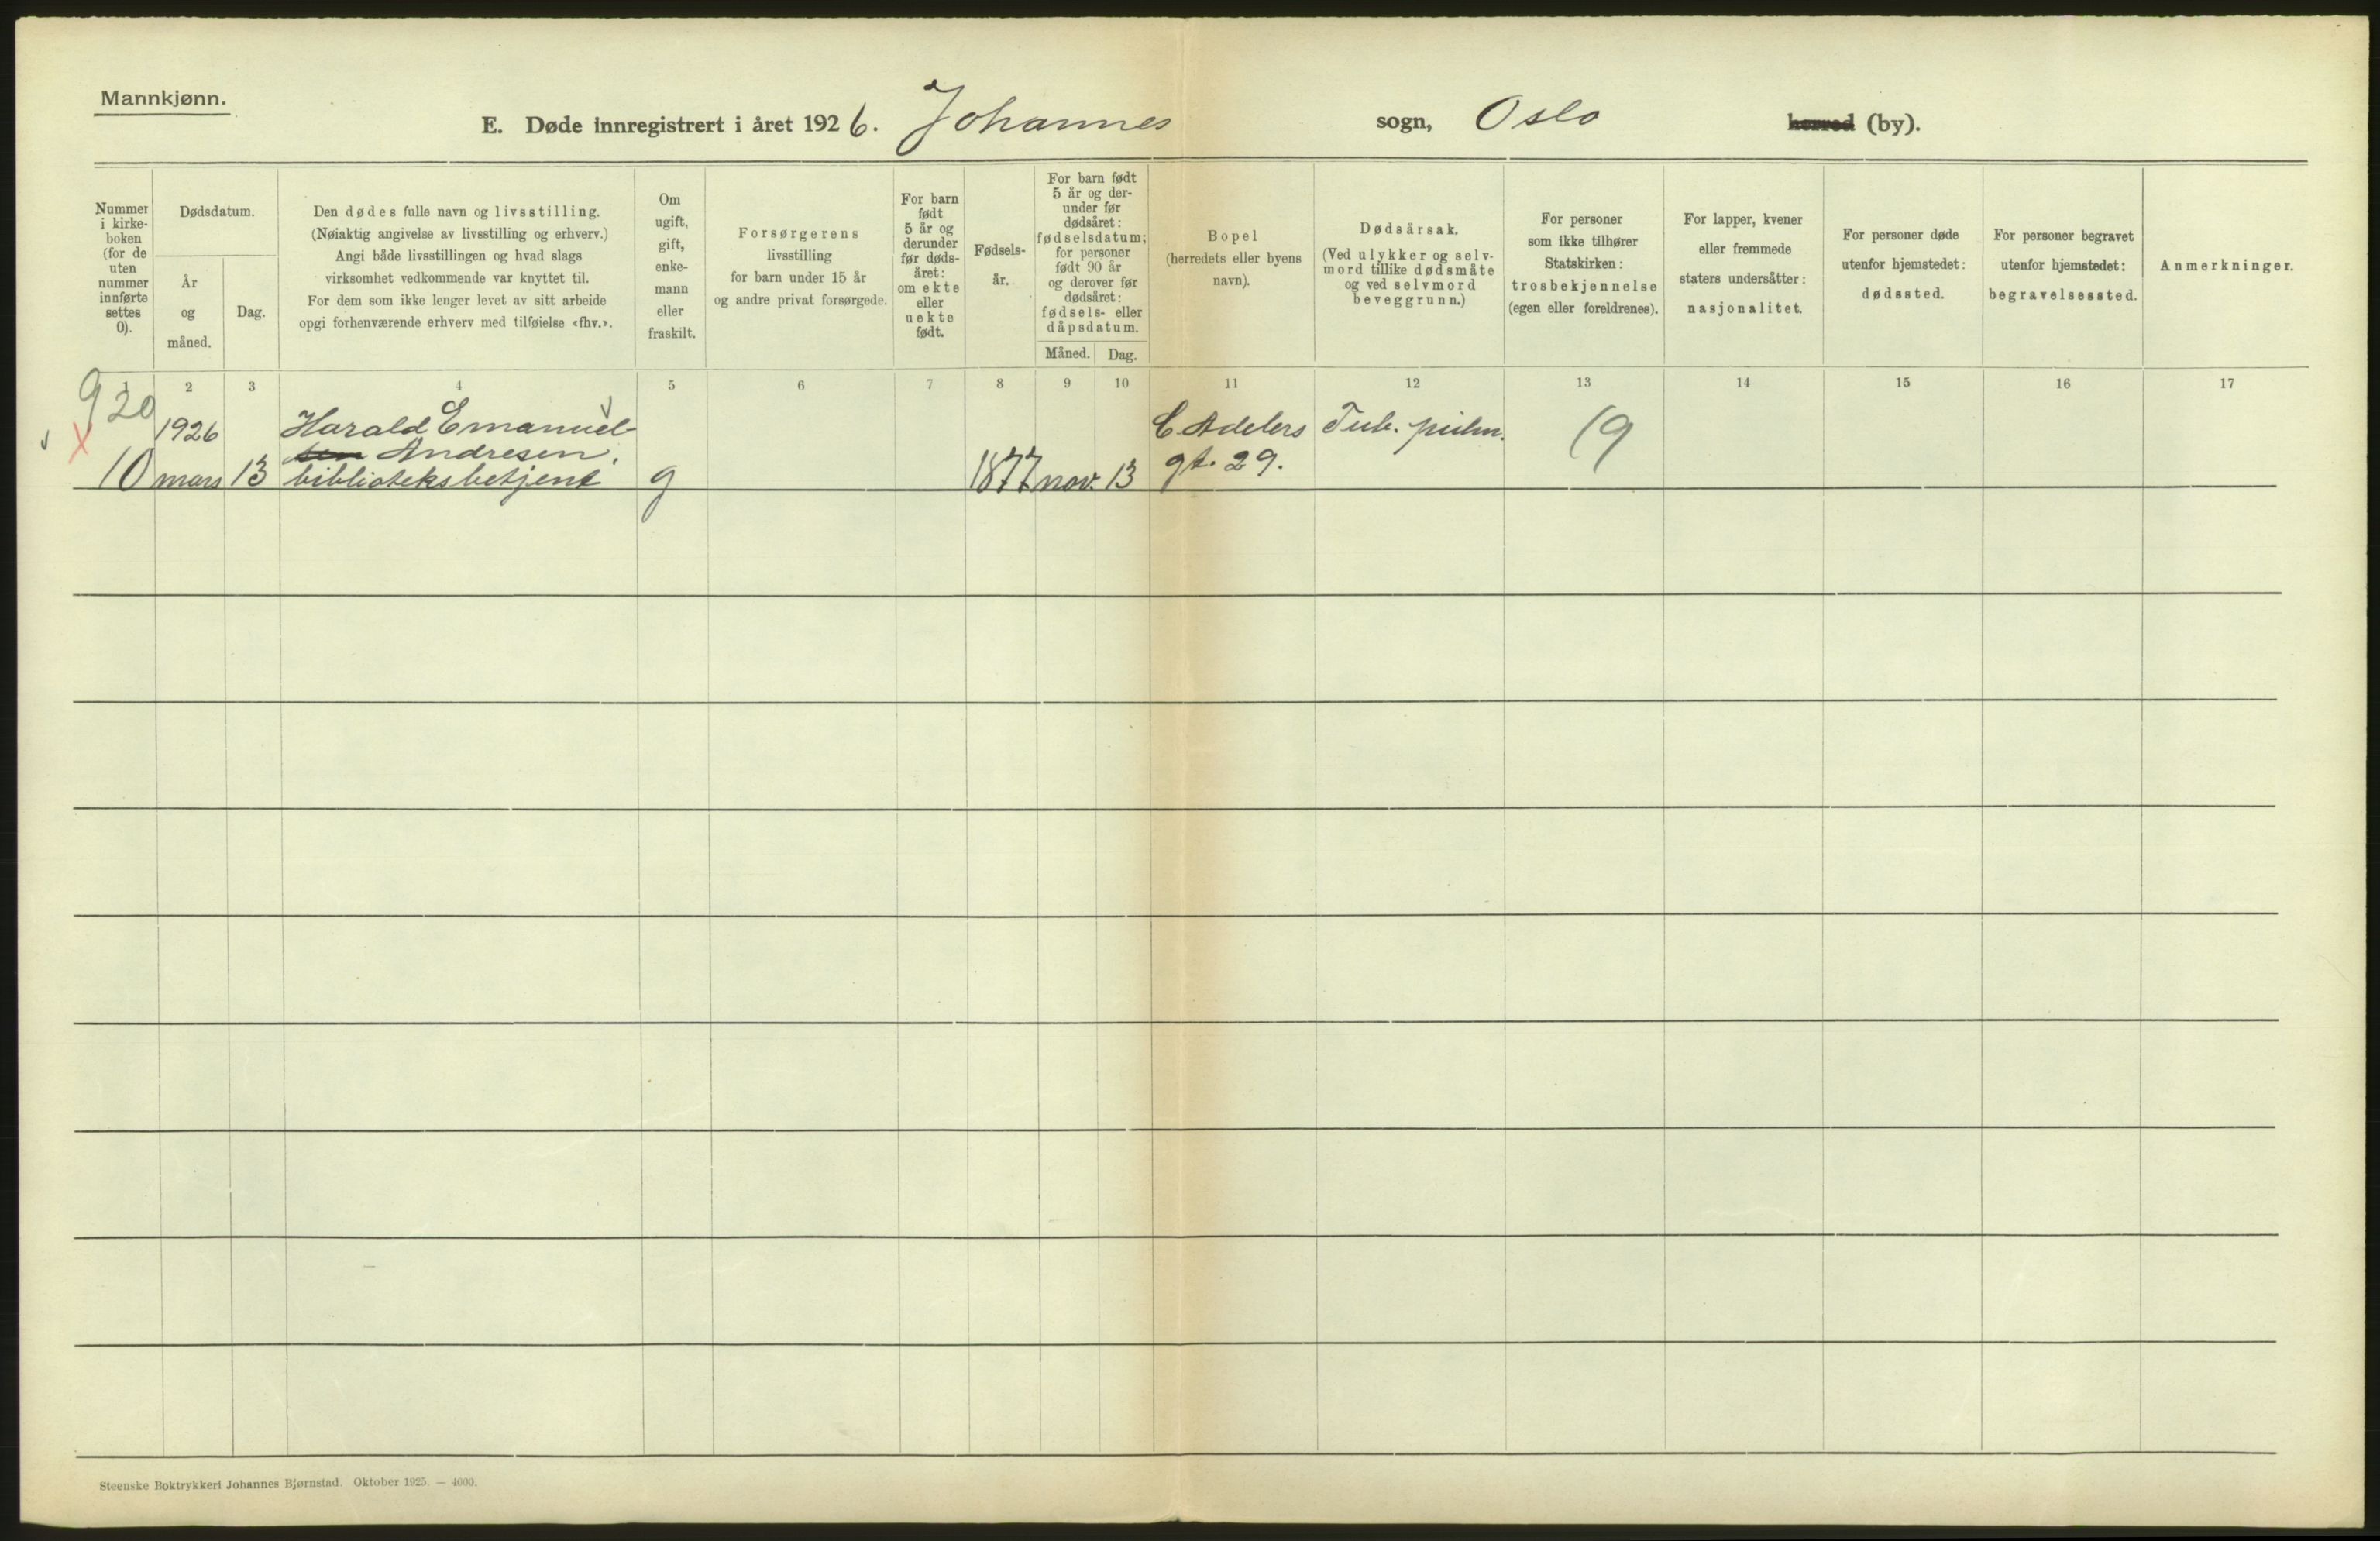 Mannkjønn.
E. Døde innregistrert i året 1926. Johannes sogn, Oslo herred (by).
Nummer
i kirke-
boken
(for de
uten
nummer
innførte
settes
0).
Dødsdatum.
År
og
måned.
Dag.
Den dødes fulle navn og livsstilling.
(Nøiaktig angivelse av livsstilling og erhverv.)
Angi både livsstillingen og hvad slags
virksomhet vedkommende var knyttet til.
For dem som ikke lenger levet av sitt arbeide
opgi forhenværende erhverv med tilføielse «fhv.».
Om
ugift,
gift,
enke-
mann
eller
fraskilt.
Forsørgerens
livsstilling
for barn under 15 år
og andre privat forsørgede.
For barn
født
5 år og
derunder
før døds-
året:
om ekte
eller
uekte
født.
Fødsels-
år.
For barn født
5 år og der-
under før
dødsåret:
fødselsdatum;
for personer
født 90 år
og derover før
dødsåret:
fødsels- eller
dåpsdatum.
Måned. Dag.
Bopel
(herredets eller byens
navn).
Dødsårsak.
(Ved ulykker og selv-
mord tillike dødsmåte
og ved selvmord
beveggrunn.)
For personer
som ikke tilhører
Statskirken:
trosbekjennelse
(egen eller foreldrenes).
For lapper, kvener
eller fremmede
staters undersåtter:
nasjonalitet.
For personer døde
utenfor hjemstedet:
dødssted.
For personer begravet
utenfor hjemstedet:
begravelsessted.
Anmerkninger.
1 2 3 4 5 6 7 8 9 10 11 12 13 14 15 16 17
920
1926 Harald Emanuel C. Adelers Tub. pulm. 19
sen Andresen,
10 mars 13 biblioteksbetjent g 1877 nov. 13 gt. 29.
Steenske Boktrykkeri Johannes Bjørnstad. Oktober 1925. — 4000.